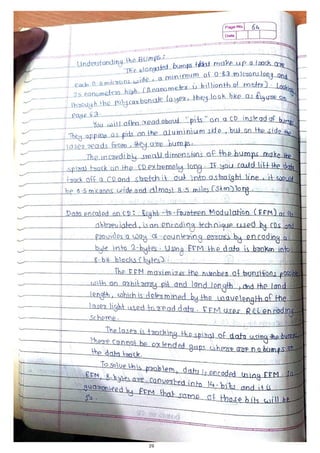 Page No. 54
Date
Understanding the Bumps:
The elongated bumps that make up a track are
each 0.5 microns wide, a minimum of 0.83 microns long and
125 nanometres high. (A nanometer is billionth of meter). Looking
through the polycarbonate layer, they look like as figure on
Page 53.
You will often read about "pits" on a CD instead of bumps
They appear as pits on the aluminium side, but on the side the
laser reads from, they are bumps.
The incredibly small dimensions of the bumps make the
spiral track on the CD extremely long. If you could lift the
track off a CD and stretch it out into a straight line, it would
be 0.5 microns wide and almost 3.5 miles (5km) long.
Data encoded on CD: Eight-to-Fourteen Modulation (EFM) as its
abbreviated, is an encoding technique used by CDs
provides a way of countering errors by encoding a
byte into 2-bytes. Using EFM the data is broken into
8-bit blocks (bytes).
The EFM maximizes the number of transitions
with an arbitrary pit and land length, and the land
length, which is determined by the wavelength of the
laser light used to read data. EFM uses RLL encoding
scheme.
The laser is tracking the spiral of data using the bumps.
There cannot be extended gaps where are no bumps in
the data track.
To solve this problem, data is encoded using EFM. In
EFM, 8-bytes are converted into 14-bits and it is
guaranteed by EFM that some of those bits will be
26